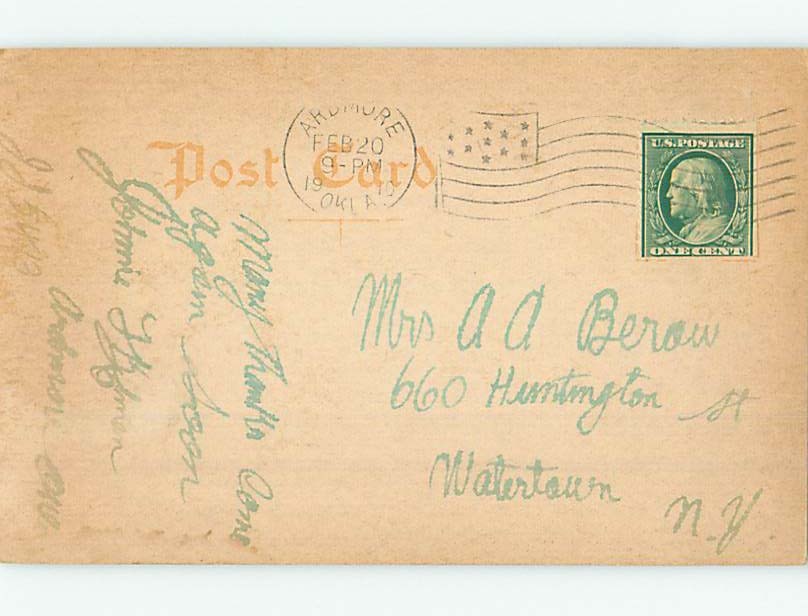 Post Card
ARDMORE
FEB 20
9-PM
19
OKLA
U.S. POSTAGE
ONE CENT
Mrs A A Berow
660 Huntington St
Watertown
N.Y
Many Thanks Come
again soon
Johnnie
Ardmore